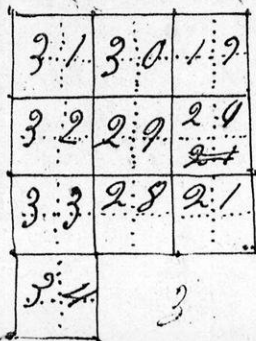 31 30 19
32 29 20
21
33 28 21
34 3